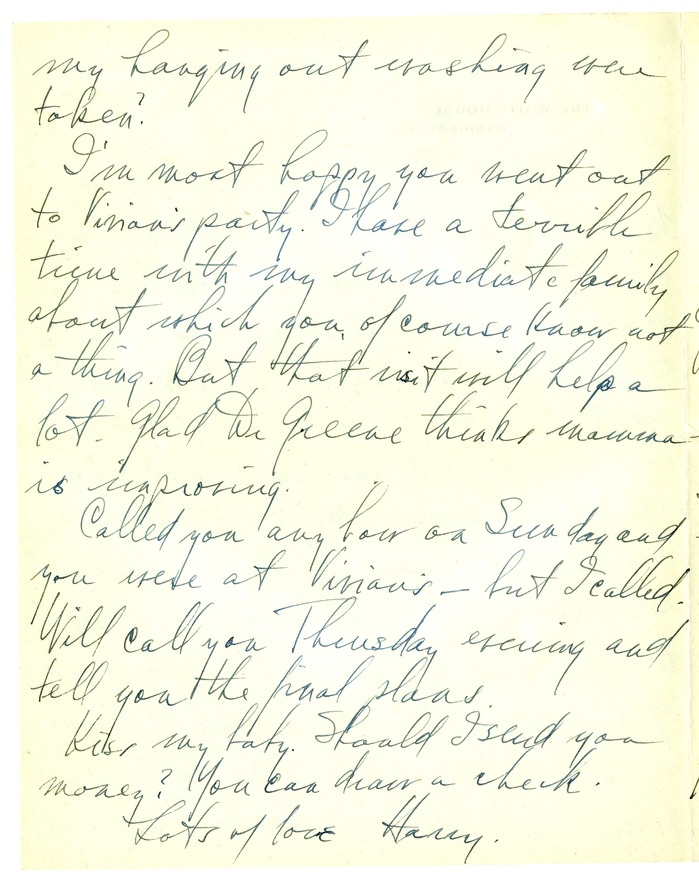 my hanging out washing were
taken?
I'm most happy you went out
to Vivian's party. I have a terrible
time with my immediate family
about which you, of course know not
a thing. But that visit will help a
lot. Glad Dr Greene thinks mamma
is improving.
Called you any how on Sunday and
you were at Vivian's - but I called.
Will call you Thursday evening and
tell you the final plans.
Kiss my baby. Should I send you
money? You can draw a check.
Lots of love Harry.